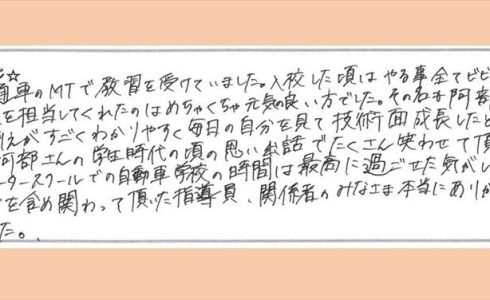 ジ☆
通車のMTで教習を受けていました。入校した頃はやる事全てビビ
を担当してくれたのはめちゃくちゃ元気の良い方でした。その名も阿部
えがすごくわかりやすく毎日の自分を見て技術面成長したと
阿部さんの学生時代の頃の思い出話でたくさん笑わせて頂
ータースクールでの自動車学校の時間は最高に過ごせた気がし
を含め関わって頂いた指導員、関係者のみなさま本当にありが
た。